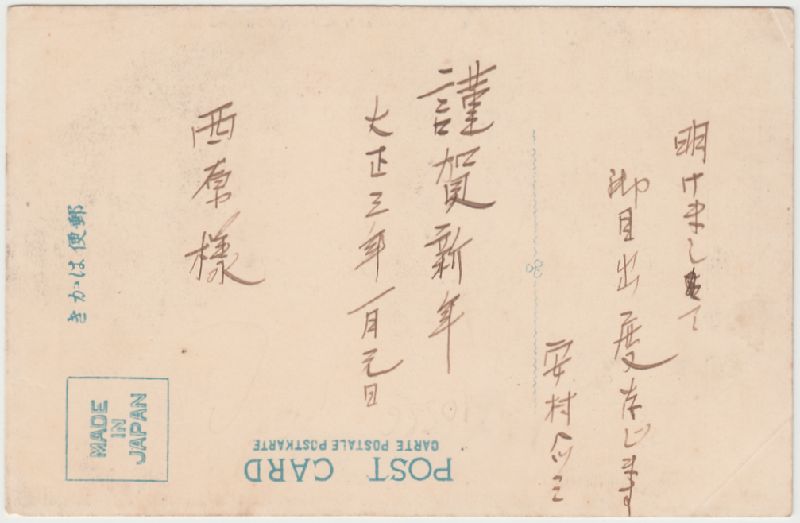 明けまして
御目出度存じます
安村
謹賀新年
大正三年一月元日
西原様
きかは便郵
MADE
IN
JAPAN
POST CARD
CARTE POSTALE POSTKARTE